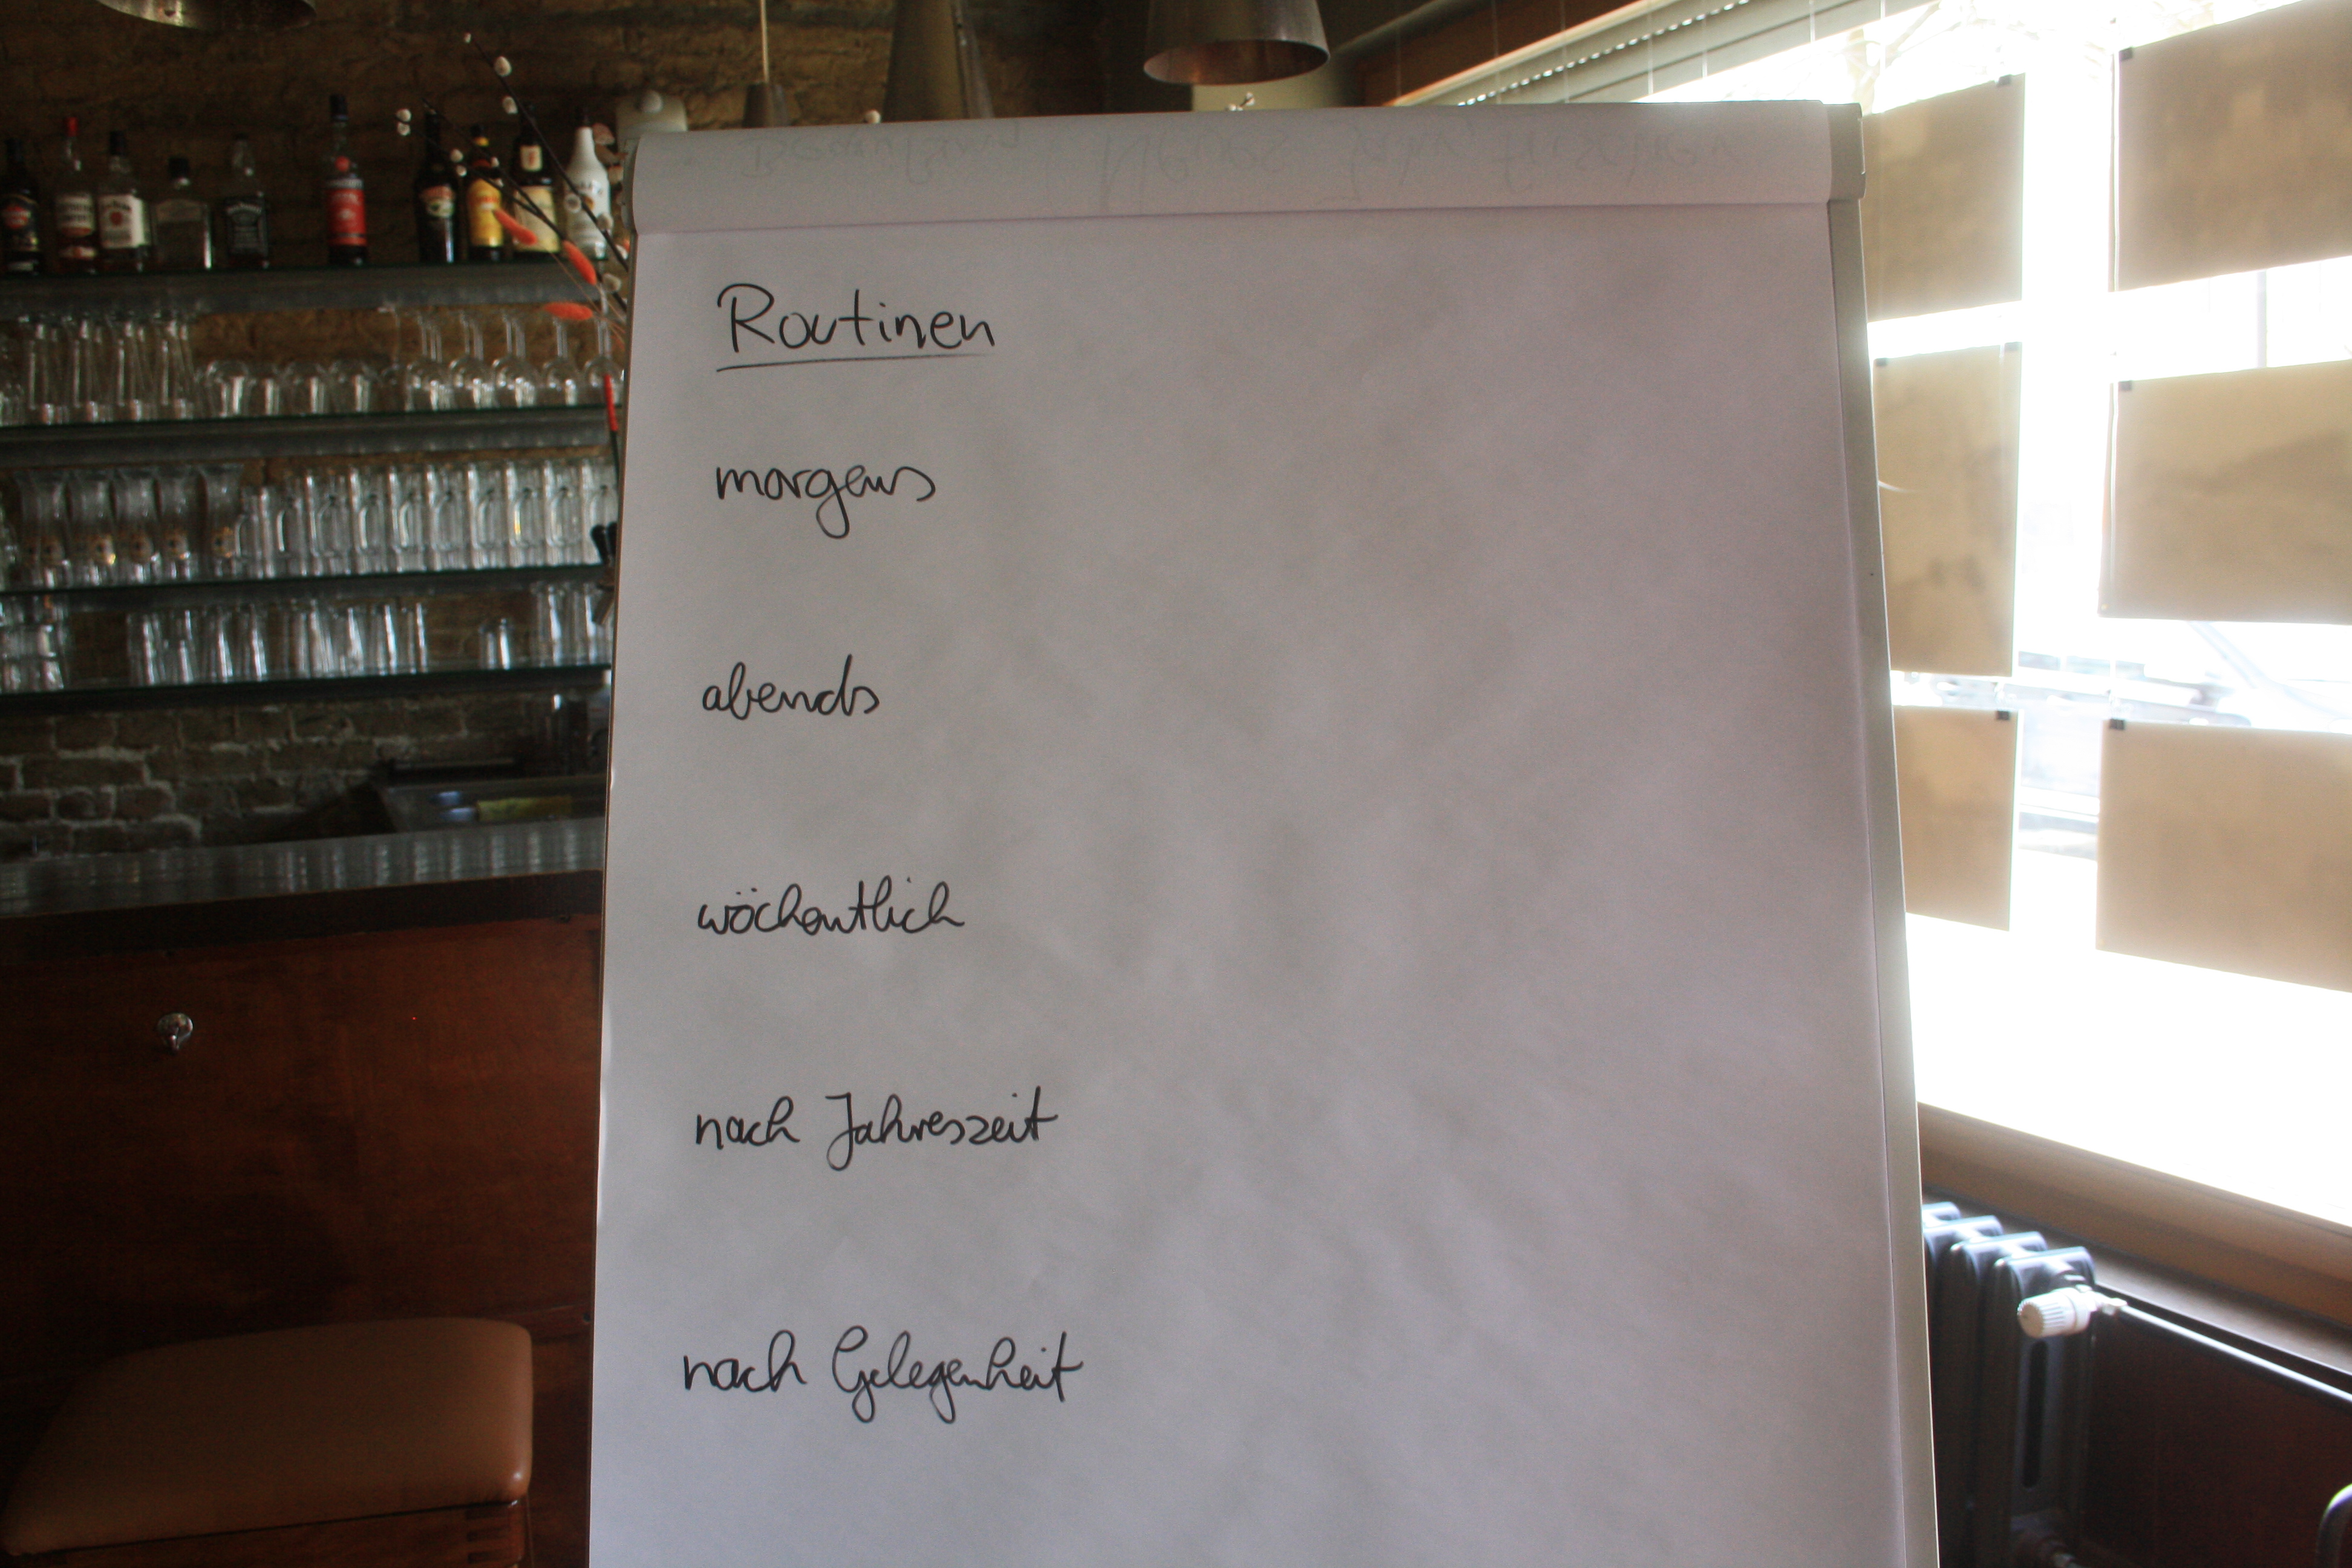 Routinen
morgens
abends
wöchentlich
nach Jahreszeit
nach Gelegenheit